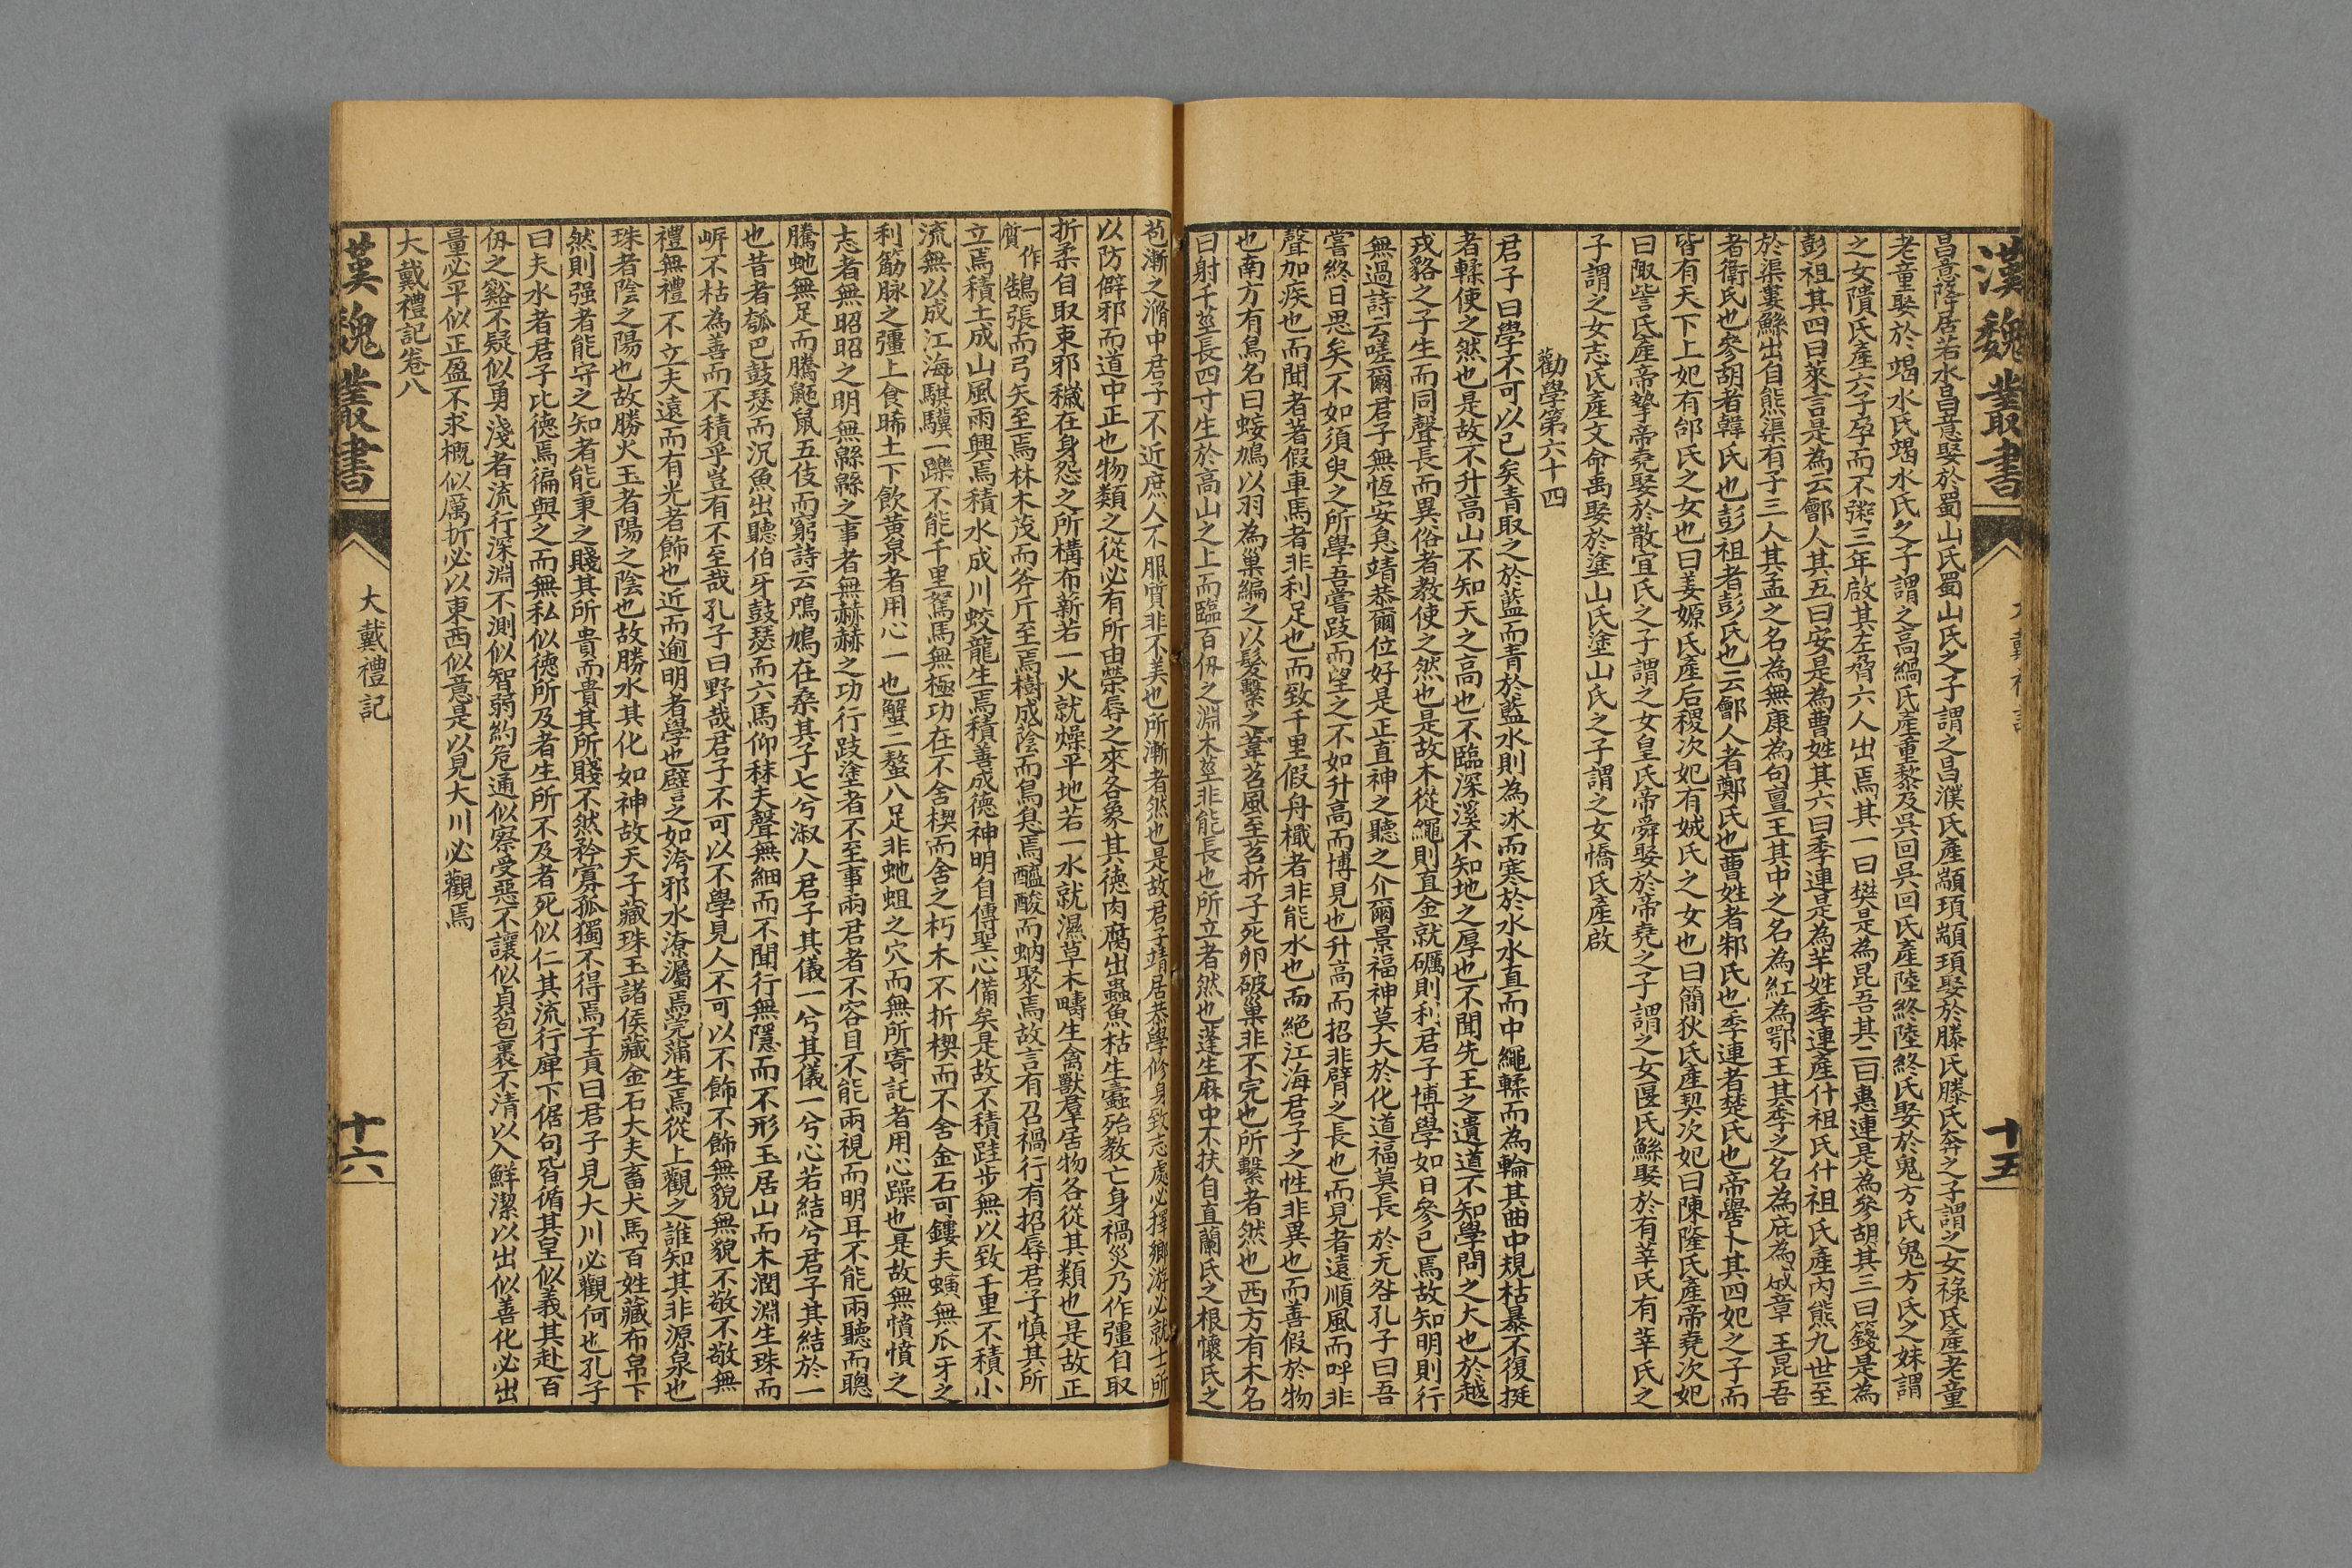 漢魏叢書
十五
昌意降居若水昌意娶於蜀山氏蜀山氏之子謂之昌濮氏產顓頊顓頊娶於滕氏滕氏奔之子謂之女祿氏產老童
老童娶於竭水氏竭水氏之子謂之高緺氏產重黎及吳回吳回氏產陸終陸終氏娶於鬼方氏鬼方氏之妹謂
之女隤氏產六子孕而不粥三年啟其左脅六人出焉其一曰樊是為昆吾其二曰惠連是為參胡其三曰籛是為
彭祖其四曰萊言是為云鄶人其五曰安是為曹姓其六曰季連是為羋姓季連產什祖氏什祖氏產內熊九世至
於渠婁鯀出自熊渠有子三人其孟之名為無康為句亶王其中之名為紅為鄂王其季之名為疵為戚章王昆吾
者衛氏也參胡者韓氏也彭祖者彭氏也云鄶人者鄭氏也曹姓者邾氏也季連者楚氏也帝嚳卜其四妃之子而
皆有天下上妃有邰氏之女也曰姜嫄氏產后稷次妃有娀氏之女也曰簡狄氏產契次妃曰陳隆氏產帝堯次妃
曰陬訾氏產帝摯帝堯娶於散宜氏之子謂之女皇氏帝舜娶於帝堯之子謂之女匽氏鯀娶於有莘氏有莘氏之
子謂之女志氏產文命禹娶於塗山氏塗山氏之子謂之女憍氏產啟
勸學第六十四
君子曰學不可以已矣青取之於藍而青於藍水則為冰而寒於水水直而中繩輮而為輪其曲中規枯暴不復挺
者輮使之然也是故不升高山不知天之高也不臨深溪不知地之厚也不聞先王之遺道不知學問之大也於越
戎貉之子生而同聲長而異俗者教使之然也是故木從繩則直金就礪則利君子博學如日參已焉故知明則行
無過詩云嗟爾君子無恆安息靖恭爾位好是正直神之聽之介爾景福神莫大於化道福莫長於无咎孔子曰吾
嘗終日思矣不如須臾之所學吾嘗跂而望之不如升高而博見也升高而招非臂之長也而見者遠順風而呼非
聲加疾也而聞者著假車馬者非利足也而致千里假舟檝者非能水也而絕江海君子之性非異也而善假於物
也南方有鳥名曰蛟鳩以羽為巢編之以髮繫之葦苕風至苕折子死卵破巢非不完也所繫者然也西方有木名
曰射干莖長四寸生於高山之上而臨百仞之淵木莖非能長也所立者然也蓬生麻中不扶自直蘭氏之根懷氏之
苞漸之滫中君子不近庶人不服質非不美也所漸者然也是故君子靖居恭學修身致志處必擇鄉游必就士所
以防僻邪而道中正也物類之從必有所由榮辱之來各象其德肉腐出蟲魚枯生蠹殆教亡身禍災乃作彊自取
折柔自取束邪穢在身怨之所構布薪若一火就燥平地若一水就濕草木疇生禽獸羣居物各從其類也是故正
一作質鵠張而弓矢至焉林木茂而斧斤至焉樹成陰而鳥息焉醯酸而蚋聚焉故言有召禍行有招辱君子慎其所
立焉積土成山風雨興焉積水成川蛟龍生焉積善成德神明自傳聖心備矣是故不積跬步無以致千里不積小
流無以成江海騏驥一躒不能千里駑馬無極功在不舍楔而舍之朽木不折楔而不舍金石可鏤夫螾無爪牙之
利筋脉之彊上食晞土下飲黃泉者用心一也蟹二螯八足非虵蛆之穴而無所寄託者用心躁也是故無憤憤之
志者無昭昭之明無緜緜之事者無赫赫之功行跂塗者不至事兩君者不容目不能兩視而明耳不能兩聽而聰
騰虵無足而騰鼫鼠五伎而窮詩云鳲鳩在桑其子七兮淑人君子其儀一兮其儀一兮心若結兮君子其結於一
也昔者瓠巴鼓瑟而沉魚出聽伯牙鼓瑟而六馬仰秣夫聲無細而不聞行無隱而不形玉居山而木潤淵生珠而
岍不枯為善而不積乎豈有不至哉孔子曰野哉君子不可以不學見人不可以不飾不飾無貌無貌不敬不敬無
禮無禮不立夫遠而有光者飾也近而逾明者學也譬之如洿邪水潦灟焉莞蒲生焉從上觀之誰知其非源泉也
珠者陰之陽也故勝火玉者陽之陰也故勝水其化如神故天子藏珠玉諸侯藏金石大夫畜犬馬百姓藏布帛下
然則强者能守之知者能秉之賤其所貴而貴其所賤不然矜寡孤獨不得焉子貢曰君子見大川必觀何也孔子
曰夫水者君子比德焉徧與之而無私似德所及者生所不及者死似仁其流行庳下倨句皆循其皇似義其赴百
仞之谿不疑似勇淺者流行深淵不測似智弱約危通似察受惡不讓似貞苞裹不清以入鮮潔以出似善化必出
量必平似正盈不求概似厲折必以東西似意是以見大川必觀焉
大戴禮記卷八
漢魏叢書
大戴禮記
十六